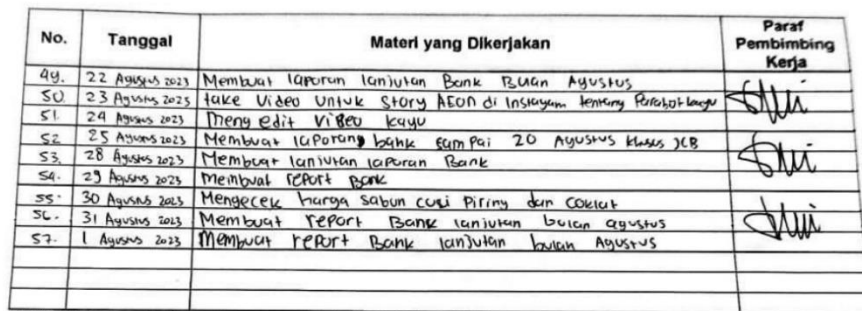 No. Tanggal Materi yang Dikerjakan Paraf Pembimbing Kerja
49. 22 Agustus 2023 Membuat laporan lanjutan Bank Bulan Agustus
50 23 Agustus 2023 take Video untuk Story AEON di Instagram tentang Parabot kayu
51. 24 Agustus 2023 Meng edit video kayu
52 25 Agustus 2023 Membuat laporang bank sampai 20 Agustus khusus JCB
53. 28 Agustus 2023 Membuat lanjutan laporan Bank
54. 29 Agustus 2023 Membuat report Bank
55. 30 Agustus 2023 Mengecek harga sabun cuci Piring dan Coklat
56. 31 Agustus 2023 Membuat report Bank lanjutan bulan agustus
57. 1 Agustus 2023 Membuat report Bank lanjutan bulan Agustus